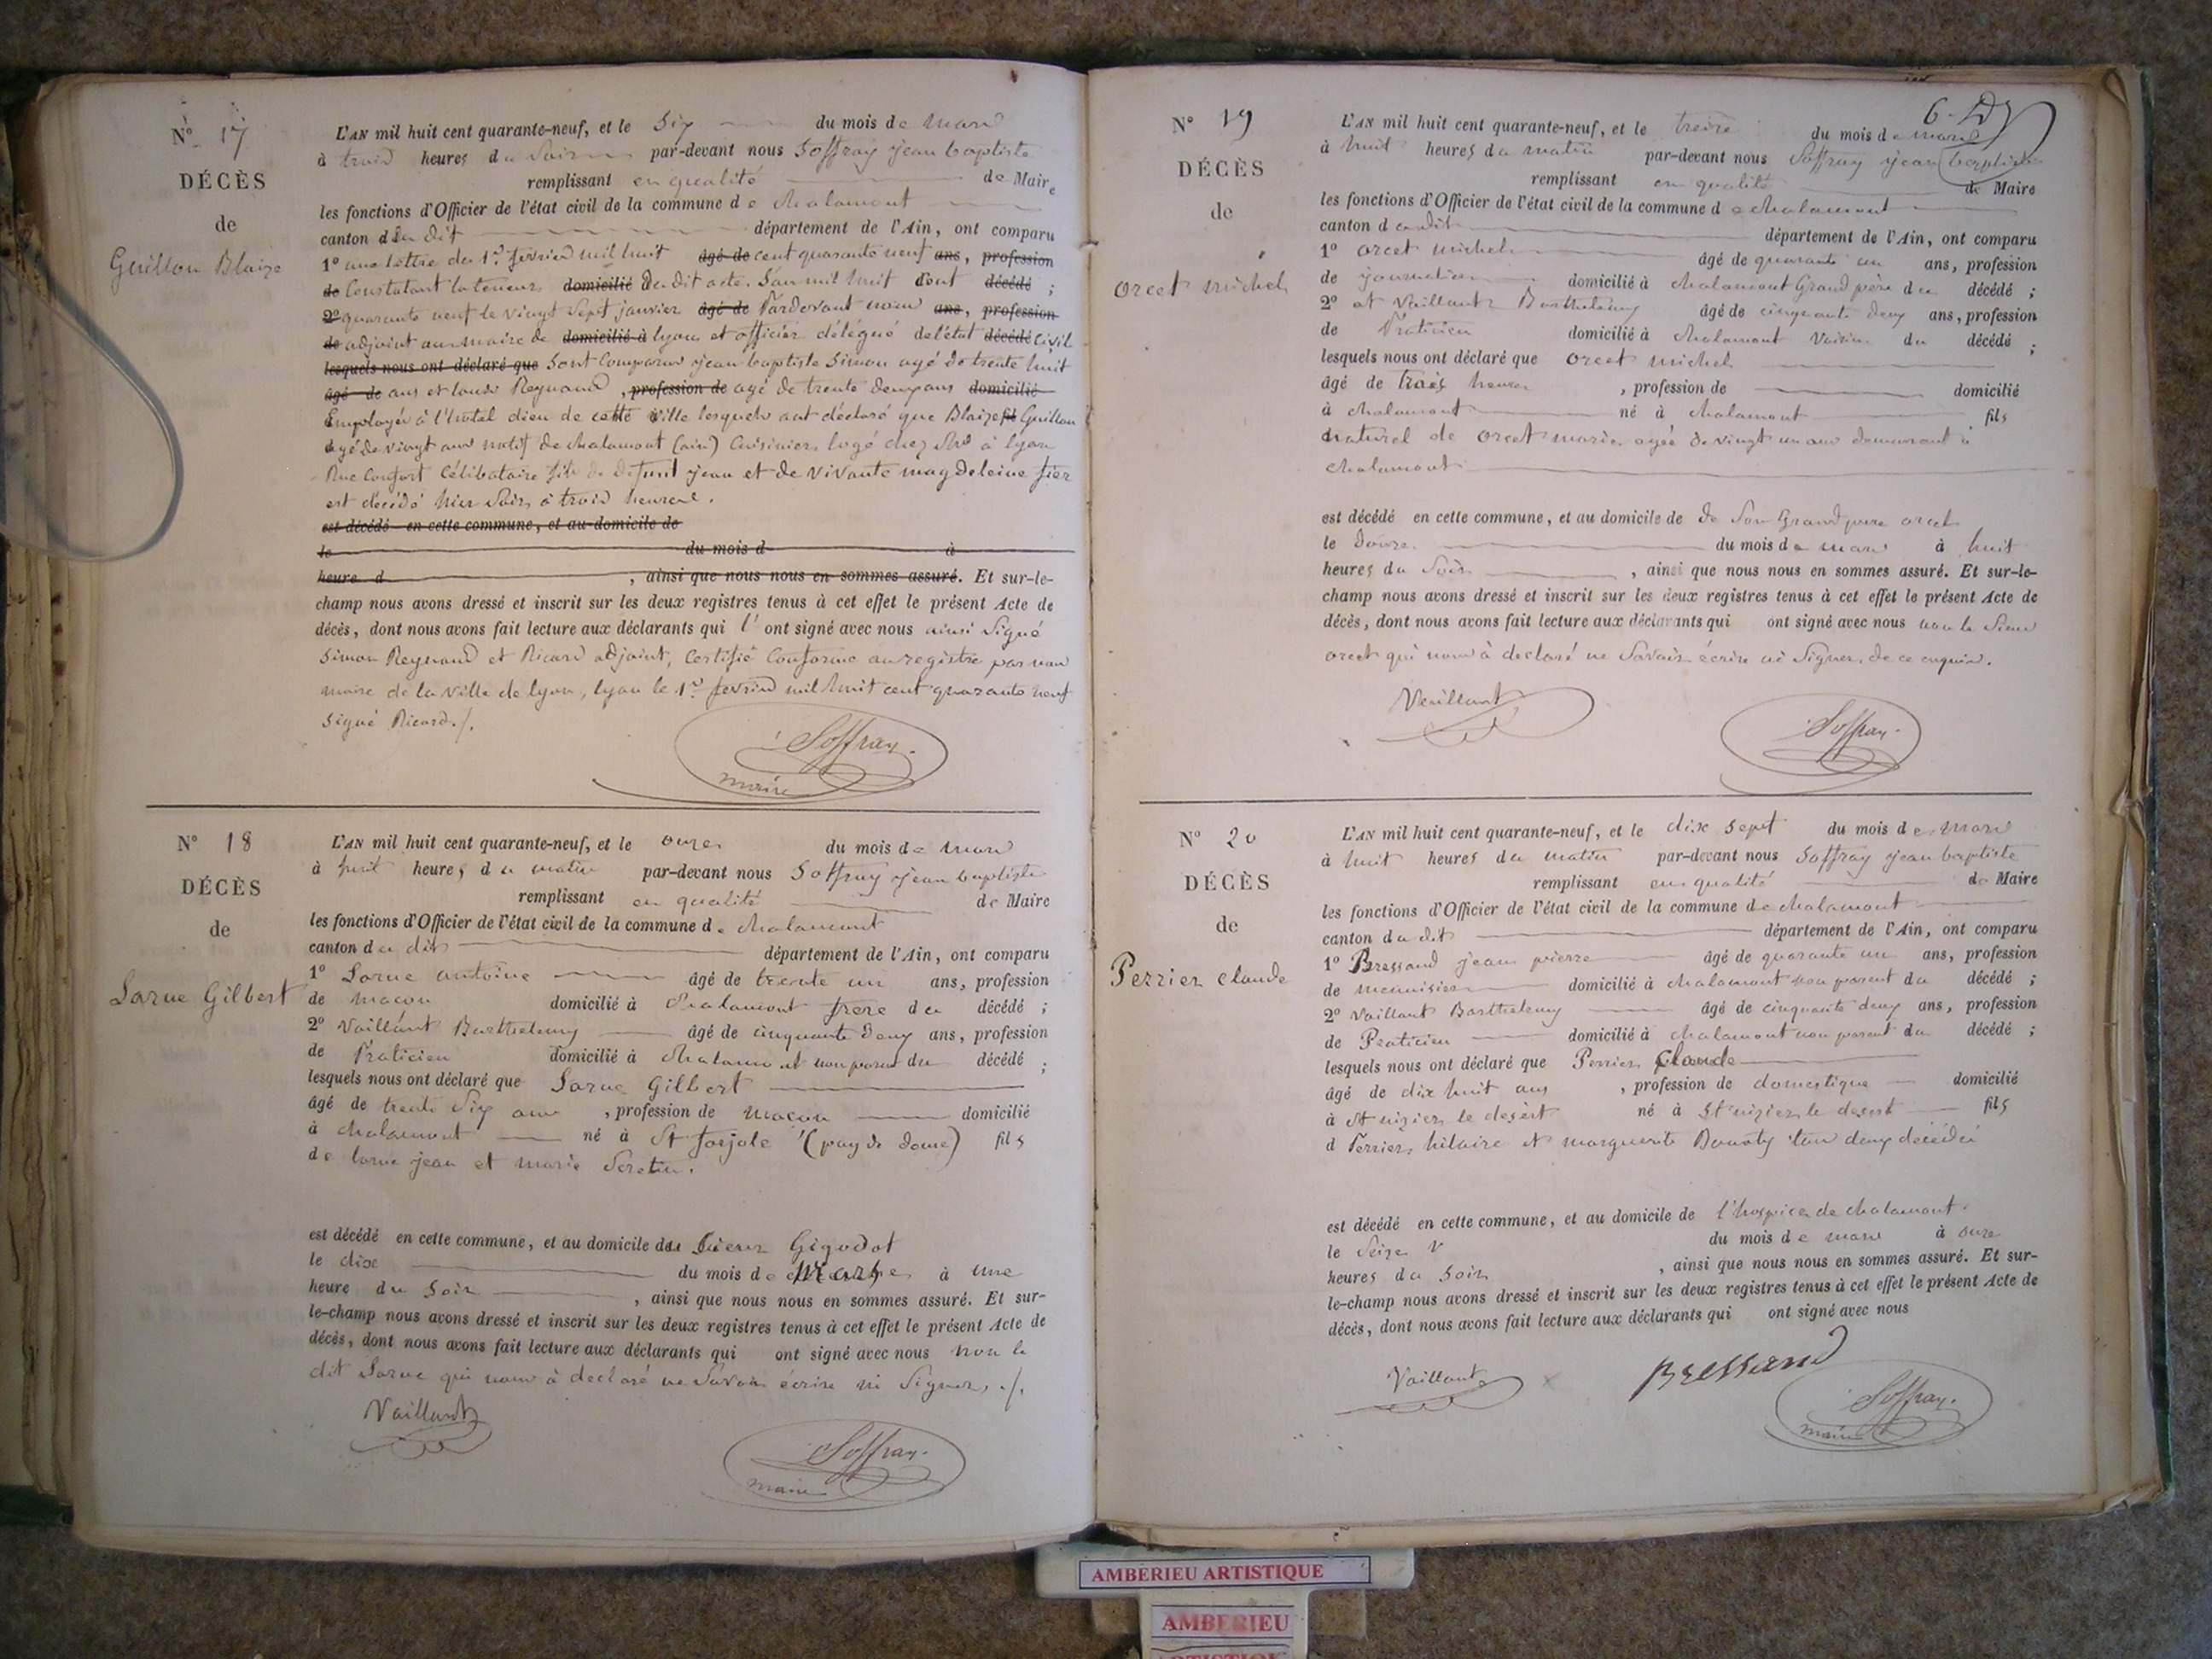 N° 17
DÉCÈS
de
Guillon Blaize
L'AN mil huit cent quarante-neuf, et le Six du mois de mars
à trois heures du Soir par-devant nous Soffray jean baptiste
remplissant en qualité de Maire
les fonctions d'Officier de l'état civil de la commune de chalamont
canton du dit département de l'Ain, ont comparu
1° une lettre du 1er fevrier mil huit âgé de cent quarante neuf ans, profession
de Constatant la teneur domicilié du dit acte. L'an mil huit cent décédé ;
2° quarante neuf le vingt Sept janvier âgé de Pardevant nous ans, profession
de adjoint au maire de domicilié à lyon et officier délégué de l'état décédé civil
lesquels nous ont déclaré que Sont Comparus jean baptiste Simon agé de trente huit
âgé de ans et louis Reynaud, profession de agé de trente deux ans domicilié
Employés à l'hotel dieu de cette ville lesquels ont déclaré que Blaize Guillon
agé de vingt ans natif de chalamont (ain) Cuisinier logé chez à lyon
Rue Confort Célibataire fils de defunt jean et de vivante magdeleine fier
est décédé hier Soir à trois heures.
est décédé en cette commune, et au domicile de
le du mois d à
heure d , ainsi que nous nous en sommes assuré. Et sur-le-
champ nous avons dressé et inscrit sur les deux registres tenus à cet effet le présent Acte de
décès, dont nous avons fait lecture aux déclarants qui l' ont signé avec nous ainsi Signé
Simon Reynaud et Ricard adjoint, Certifié Conforme au registre par nous
maire de la ville de lyon, lyon le 1er fevrier mil huit cent quarante neuf
Signé Ricard./.
Soffray
maire
N° 18
DÉCÈS
de
Larue Gilbert
L'AN mil huit cent quarante-neuf, et le onze du mois de mars
à huit heures du matin par-devant nous Soffray jean baptiste
remplissant en qualité de Maire
les fonctions d'Officier de l'état civil de la commune de chalamont
canton du dit département de l'Ain, ont comparu
1° Larue antoine âgé de trente un ans, profession
de macon domicilié à Chalamont frere du décédé ;
2° Vaillant Barthelemy âgé de cinquante deux ans, profession
de Praticien domicilié à chalamont non parent du décédé ;
lesquels nous ont déclaré que Larue Gilbert
âgé de trente Six ans , profession de macon domicilié
à chalamont né à St (puy de dome) fils
de larue jean et marie
est décédé en cette commune, et au domicile du Sieur Gigodot
le dix du mois de mars à une
heure du Soir , ainsi que nous nous en sommes assuré. Et sur-
le-champ nous avons dressé et inscrit sur les deux registres tenus à cet effet le présent Acte de
décès, dont nous avons fait lecture aux déclarants qui ont signé avec nous non le
dit Larue qui nous à declaré ne Savoir écrire ni Signer ./.
Vaillant
Soffray
maire
N° 19
DÉCÈS
de
orcet michel
L'AN mil huit cent quarante-neuf, et le treize du mois de mars
à huit heures du matin par-devant nous Soffray jean baptiste
remplissant en qualité de Maire
les fonctions d'Officier de l'état civil de la commune de chalamont
canton du dit département de l'Ain, ont comparu
1° orcet michel âgé de quarante un ans, profession
de journalier domicilié à chalamont Grand père du décédé ;
2° et Vaillant Barthelemy âgé de cinquante deux ans, profession
de Praticien domicilié à chalamont Voisin du décédé ;
lesquels nous ont déclaré que orcet michel
âgé de trois heures , profession de domicilié
à chalamont né à chalamont fils
naturel de orcet marie agée de vingt un ans demeurant à
chalamont
est décédé en cette commune, et au domicile de de Son Grand pere orcet
le douze du mois de mars à huit
heures du Soir , ainsi que nous nous en sommes assuré. Et sur-le-
champ nous avons dressé et inscrit sur les deux registres tenus à cet effet le présent Acte de
décès, dont nous avons fait lecture aux déclarants qui ont signé avec nous non le Sieur
orcet qui nous à declaré ne Savoir écrire ni Signer de ce enquis.
Vaillant
Soffray
N° 20
DÉCÈS
de
Perrier claude
L'AN mil huit cent quarante-neuf, et le dix sept du mois de mars
à huit heures du matin par-devant nous Soffray jean baptiste
remplissant en qualité de Maire
les fonctions d'Officier de l'état civil de la commune de chalamont
canton du dit département de l'Ain, ont comparu
1° Bressand jean pierre âgé de quarante un ans, profession
de menuisier domicilié à chalamont non parent du décédé ;
2° Vaillant Barthelemy âgé de cinquante deux ans, profession
de Praticien domicilié à chalamont non parent du décédé ;
lesquels nous ont déclaré que Perrier Claude
âgé de dix huit ans , profession de domestique domicilié
à St nizier le desert né à St nizier le desert fils
d Perrier hilaire et marguerite tous deux décédés
est décédé en cette commune, et au domicile de l'hospice de chalamont
le Seize du mois de mars à onze
heures du Soir , ainsi que nous nous en sommes assuré. Et sur-
le-champ nous avons dressé et inscrit sur les deux registres tenus à cet effet le présent Acte de
décès, dont nous avons fait lecture aux déclarants qui ont signé avec nous
Vaillant
Bressand
Soffray
maire
AMBERIEU ARTISTIQUE
AMBERIEU